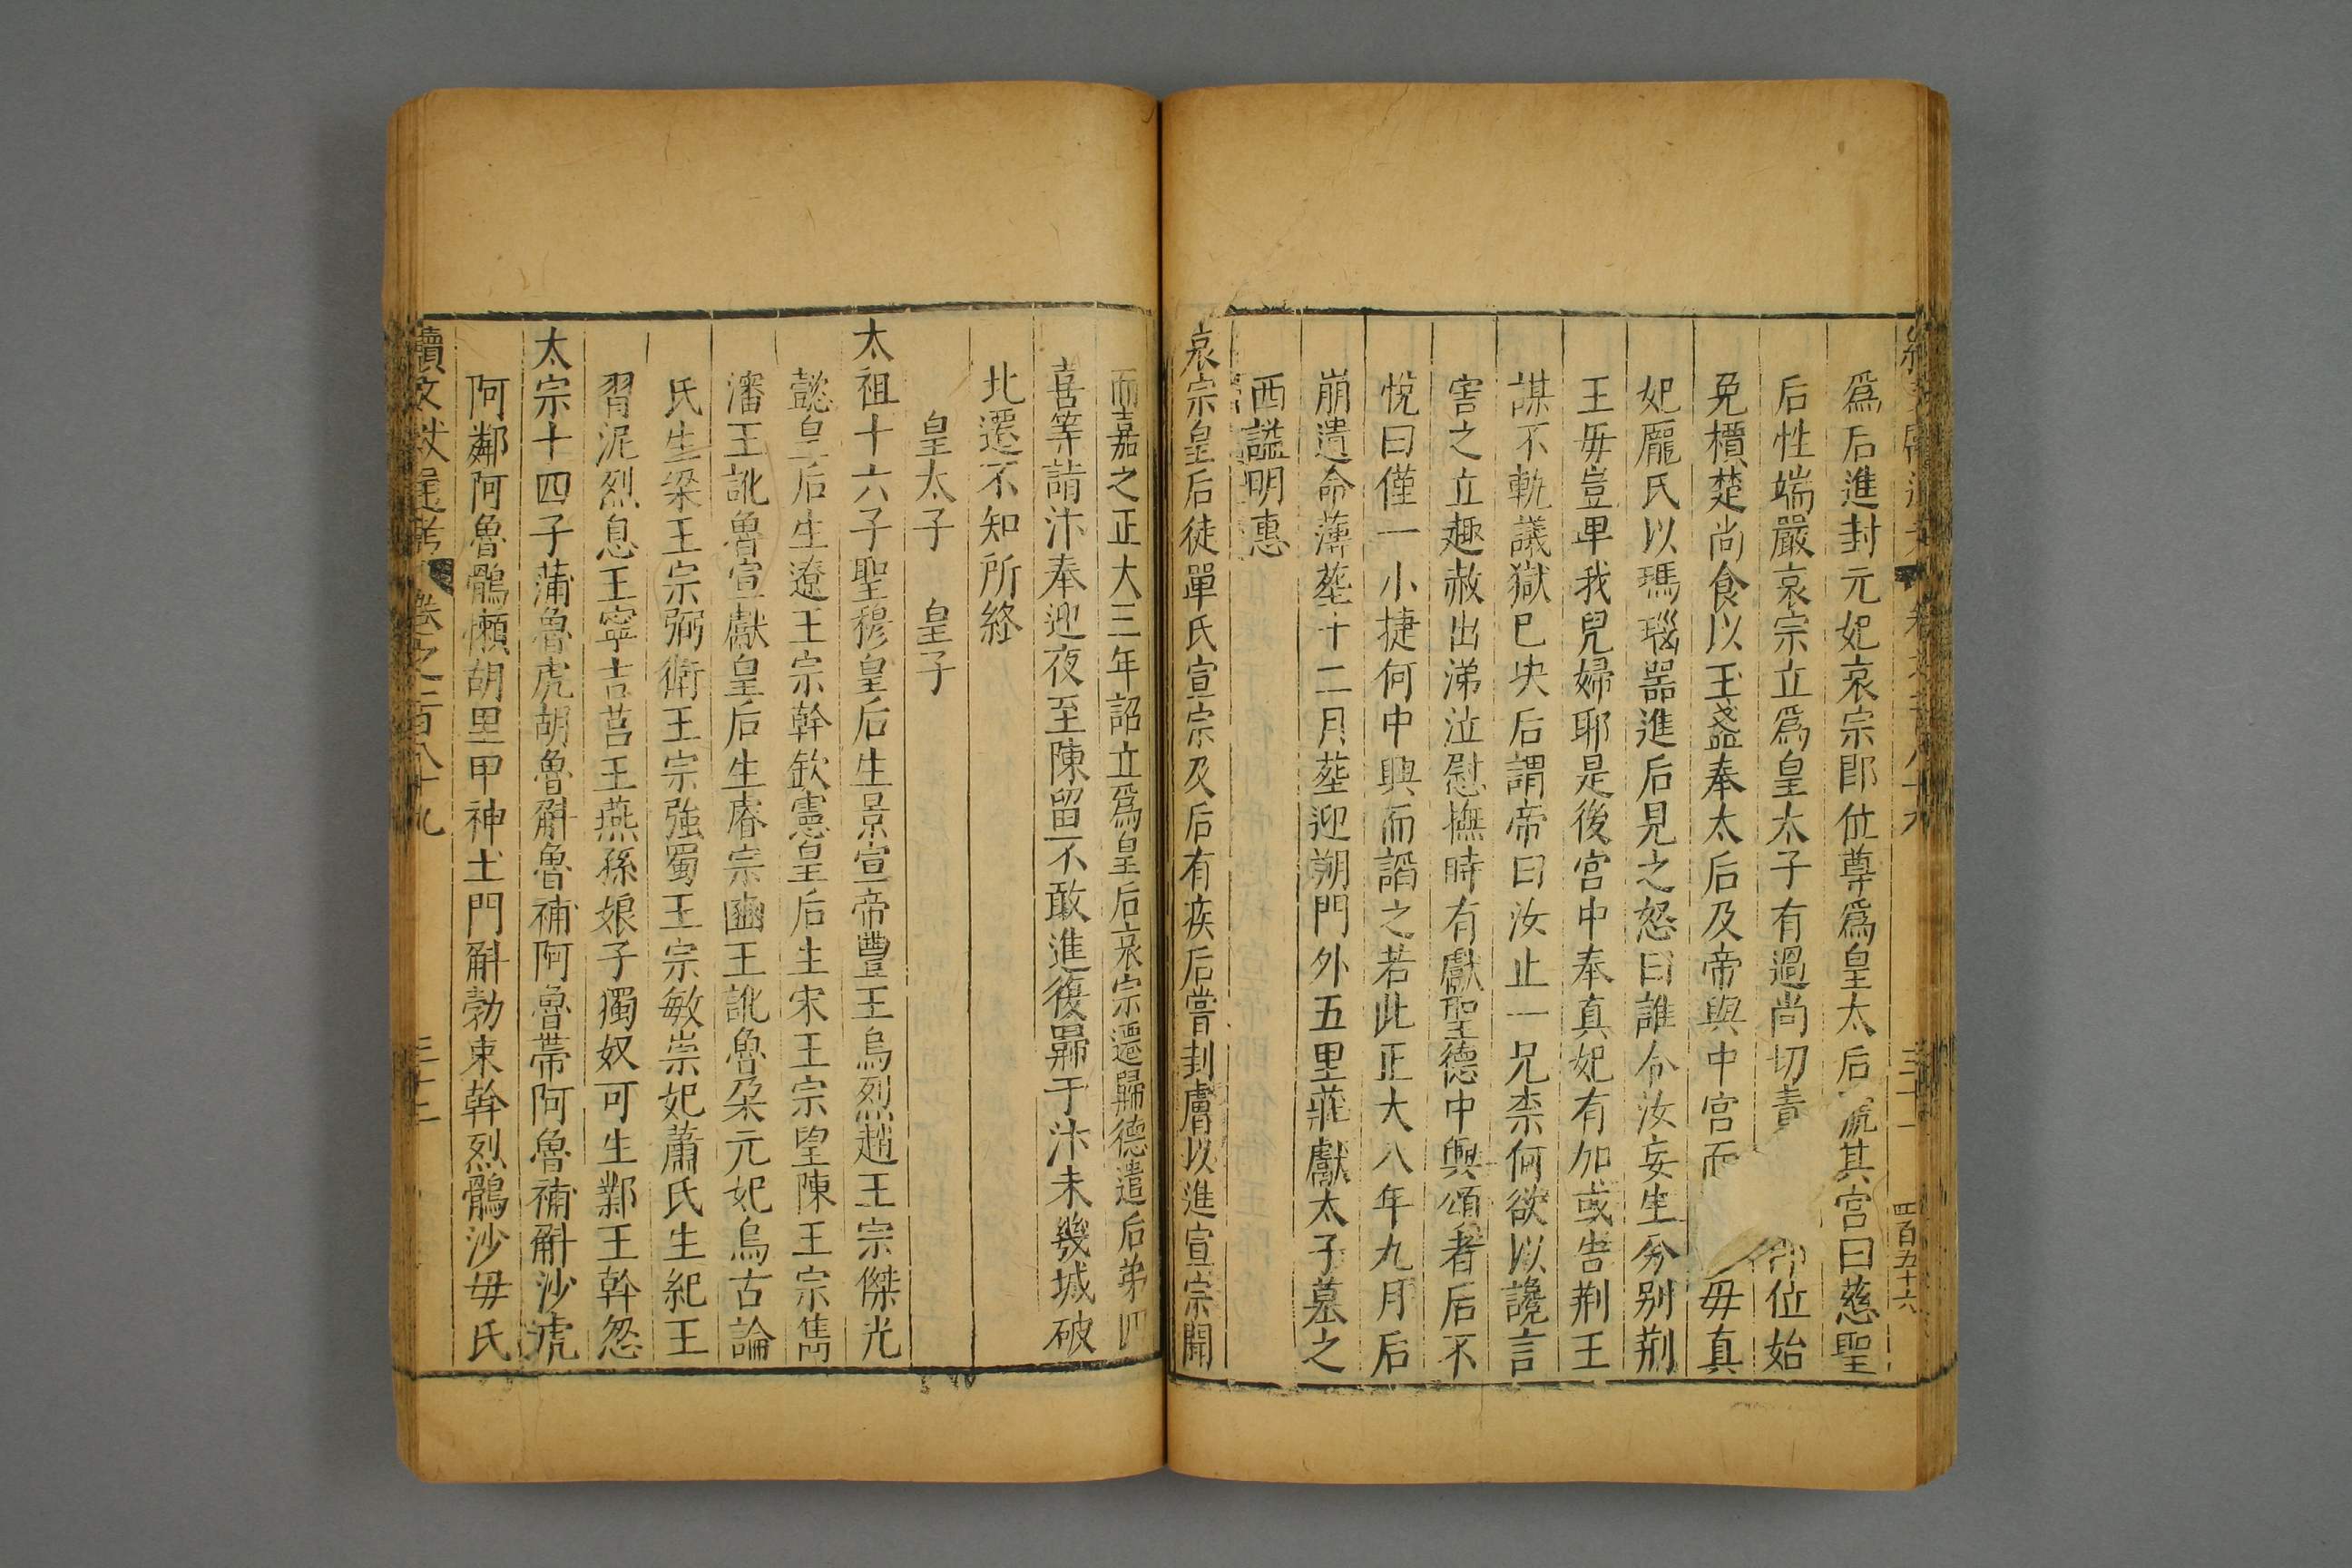 四百五十六
爲后進封元妃哀宗即位尊爲皇太后號其宮曰慈聖
后性端嚴哀宗立爲皇太子有過尚切責 即位始
免檟楚尚食以玉盌奉太后及帝與中宮而 毋真
妃龐氏以瑪瑙器進后見之怒曰誰令汝妄生分别荆
王毋豈卑我兒婦耶是後宮中奉真妃有加或告荆王
謀不軌議獄已决后謂帝曰汝止一兄柰何欲以讒言
害之立趣赦出涕泣慰撫時有獻聖德中興頌者后不
悅曰僅一小捷何中興而謟之若此正大八年九月后
崩遺命薄葬十二月葬迎朔門外五里莊獻太子墓之
西謚明惠
哀宗皇后徒單氏宣宗及后有疾后嘗刲膚以進宣宗聞
而嘉之正大三年詔立爲皇后哀宗遷歸德遣后弟四
喜等請汴奉迎夜至陳留不敢進復歸于汴未幾城破
北遷不知所終
皇太子 皇子
太祖十六子聖穆皇后生景宣帝豐王烏烈趙王宗傑光
懿皇后生遼王宗幹欽憲皇后生宋王宗望陳王宗雋
瀋王訛魯宣獻皇后生睿宗豳王訛魯朶元妃烏古論
氏生梁王宗弼衛王宗強蜀王宗敏崇妃蕭氏生紀王
習泥烈息王寧吉莒王燕孫娘子獨奴可生鄴王斡忽
太宗十四子蒲魯虎胡魯斛魯補阿魯帶阿魯補斛沙虎
阿鄰阿魯鶻懶胡里甲神土門斛勃束斡烈鶻沙毋氏
續文獻通考 卷之二百八十九 三十二